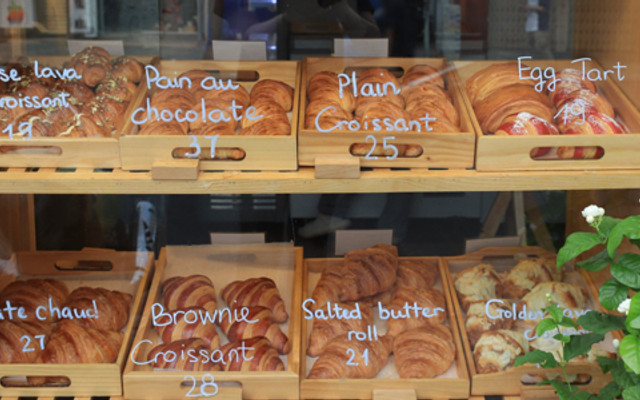 se lava
roissant
19
Pain au
chocolate
37
Plain
Croissant
25
Egg Tart
19
ate chaud!
27
Brownie
Croissant
28
Salted butter
roll
21
Golden